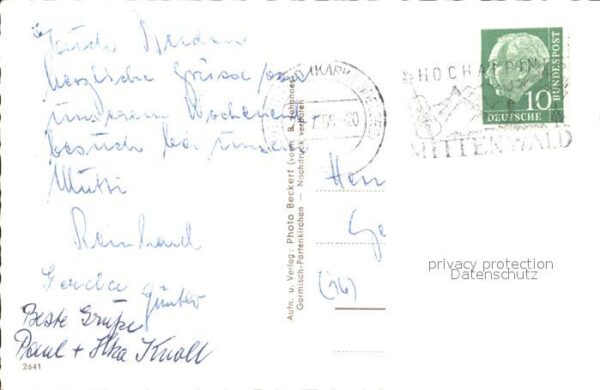 herzliche Grüsse von
unserem Wochenend
besuch bei unserer
Mutti
Reinhard
Gerda
Günter
Beste Grüße
Paul + Ilka Knoll
2641
Aufn. u. Verlag: Photo Beckert (vorm. B. Johannes)
Garmisch-Partenkirchen — Nachdruck verboten
HOCHALPEN
MITTENWALD
10
DEUTSCHE
BUNDESPOST
Herr
(16)
privacy protection
Datenschutz